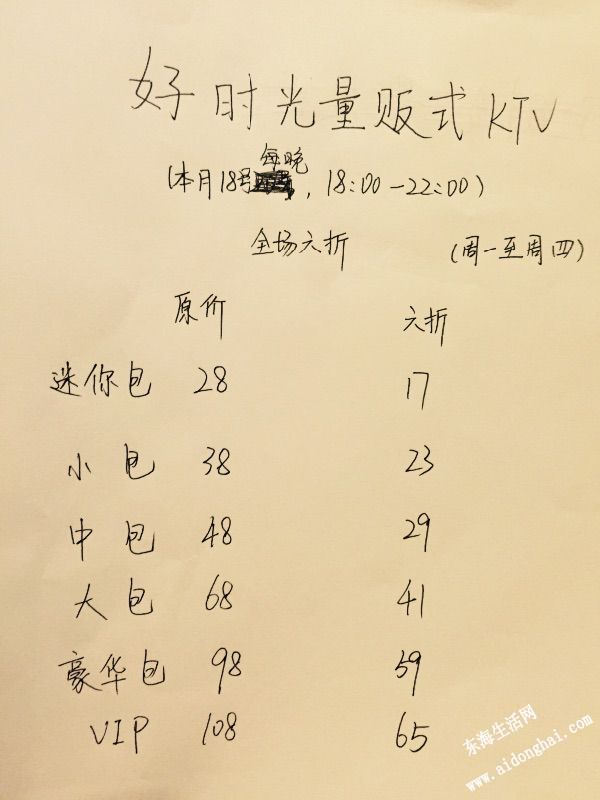 好时光量贩式KTV
(本月18号每晚, 18:00-22:00)
全场六折 (周一至周四)
原价 六折
迷你包 28 17
小包 38 23
中包 48 29
大包 68 41
豪华包 98 59
VIP 108 65
东海生活网
www.aidonghai.com